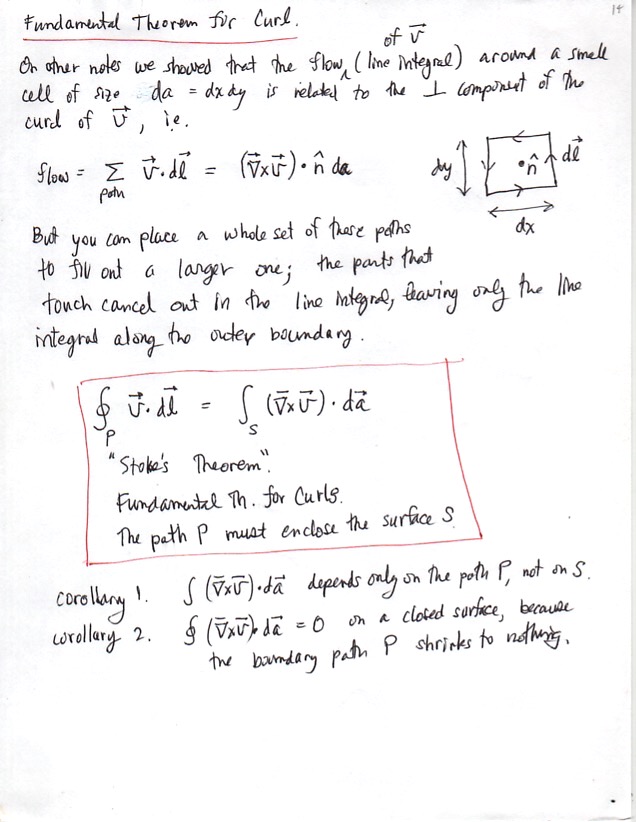 14
Fundamental Theorem for Curl.
of v⃗
On other notes we showed that the flow (line integral) around a small
cell of size da = dxdy is related to the ⊥ component of the
curl of v⃗, i.e.
flow = Σ v⃗·dl⃗ = (∇⃗×v⃗)·n̂ da
path
dy
n̂
dl⃗
dx
But you can place a whole set of these paths
to fill out a larger one; the parts that
touch cancel out in the line integral, leaving only the line
integral along the outer boundary.
∮ v⃗·dl⃗ = ∫ (∇⃗×v⃗)·da⃗
P S
"Stoke's Theorem".
Fundamental Th. for Curls.
The path P must enclose the surface S.
corollary 1. ∫ (∇⃗×v⃗)·da⃗ depends only on the path P, not on S.
corollary 2. ∮ (∇⃗×v⃗)·da⃗ = 0 on a closed surface, because
the boundary path P shrinks to nothing.